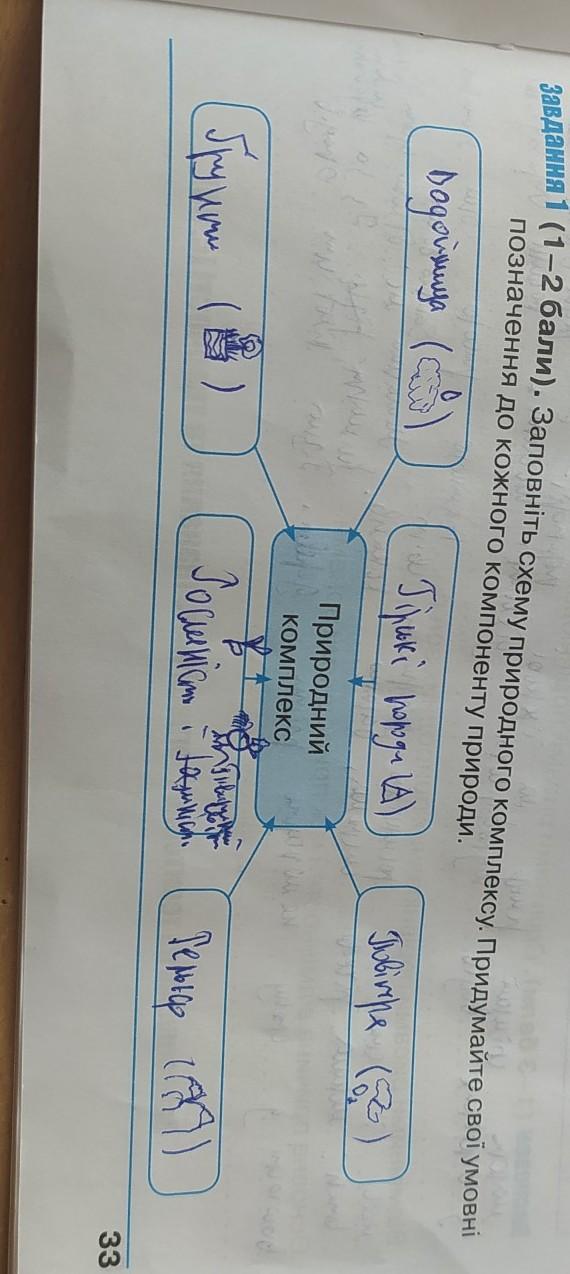 Завдання 1 (1–2 бали). Заповніть схему природного комплексу. Придумайте свої умовні
позначення до кожного компоненту природи.
Водоймища
Гірські породи
Повітря
Природний
комплекс
Ґрунти
Рослинність і
Рельєф
O₂
33